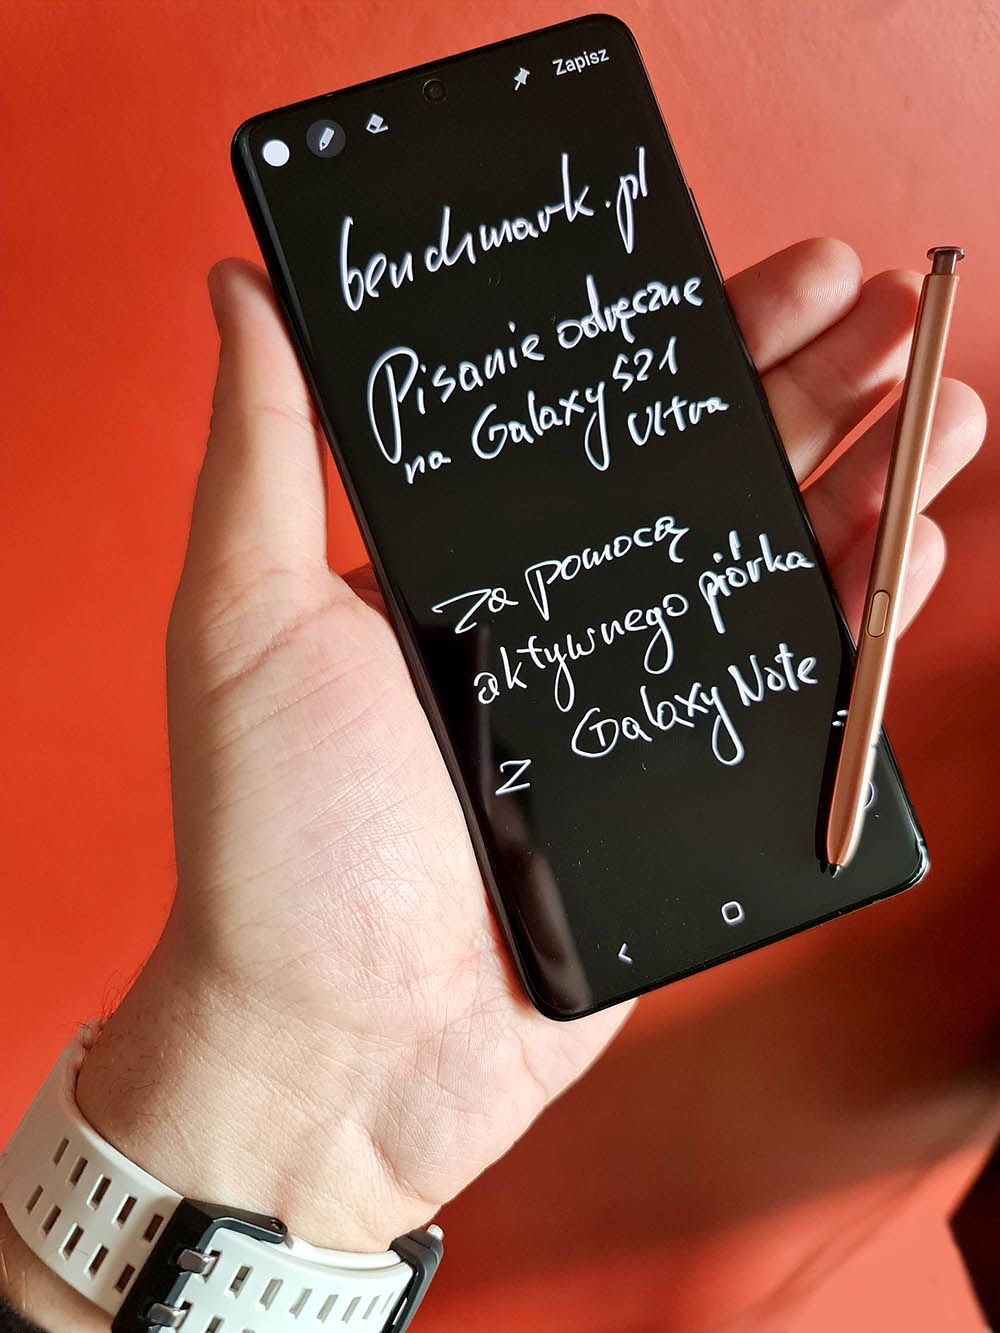 Zapisz
benchmark.pl
Pisanie odręczne
na Galaxy S21
Ultra
za pomocą
aktywnego piórka
z Galaxy Note